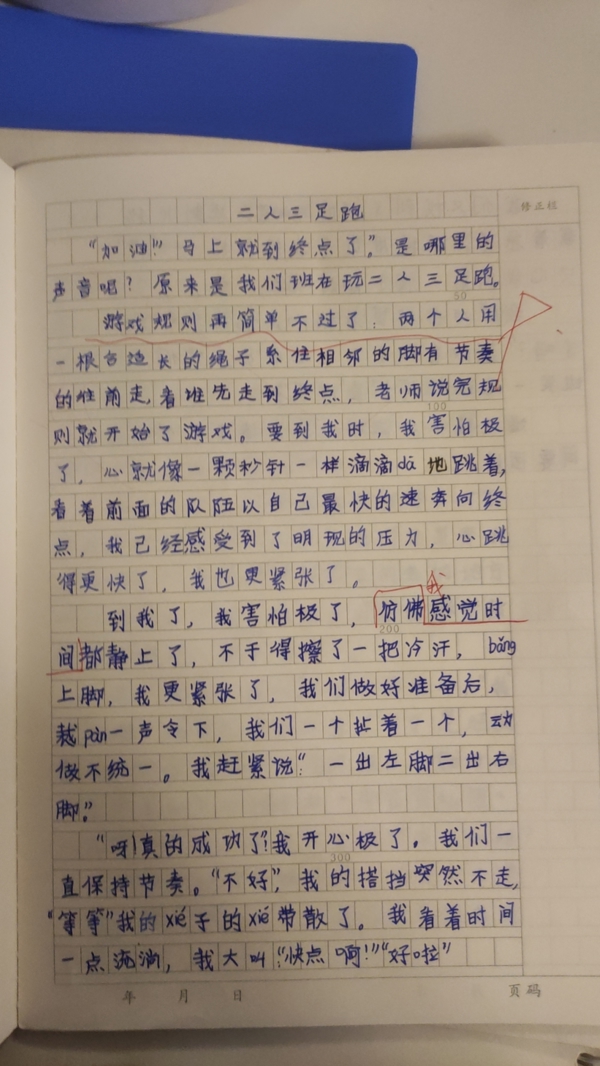 二人三足跑
修正栏
“加油!”马上就到终点了”。是哪里的
声音呢？原来是我们班在玩二人三足跑。
50
游戏规则再简单不过了：两个人用
一根台边长的绳子系住相邻的脚有节奏
的往前走,看谁先走到终点，老师说完规
100
则就开始了游戏。要到我时，我害怕极
了，心就像一颗秒针一样滴滴dā地跳着,
看着前面的队伍以自己最快的速奔向终
点，我已经感受到了明现的压力，心跳
得更快了，我也更紧张了。
我
到我了，我害怕极了，仿佛感觉时
200
间都静止了，不于得擦了一把冷汗，bǎng
上脚，我更紧张了，我们做好准备后，
裁pàn一声令下，我们一个扯着一个，动
做不统一。我赶紧说“一出左脚二出右
脚”
“呀!真的成功了?我开心极了。我们一
300
直保持节奏。“不好”，我的搭挡突然不走,
“等等”我的xié子的xié带散了。我看着时间
一点流淌，我大叫“快点啊!”“好啦”
年 月 日
页码